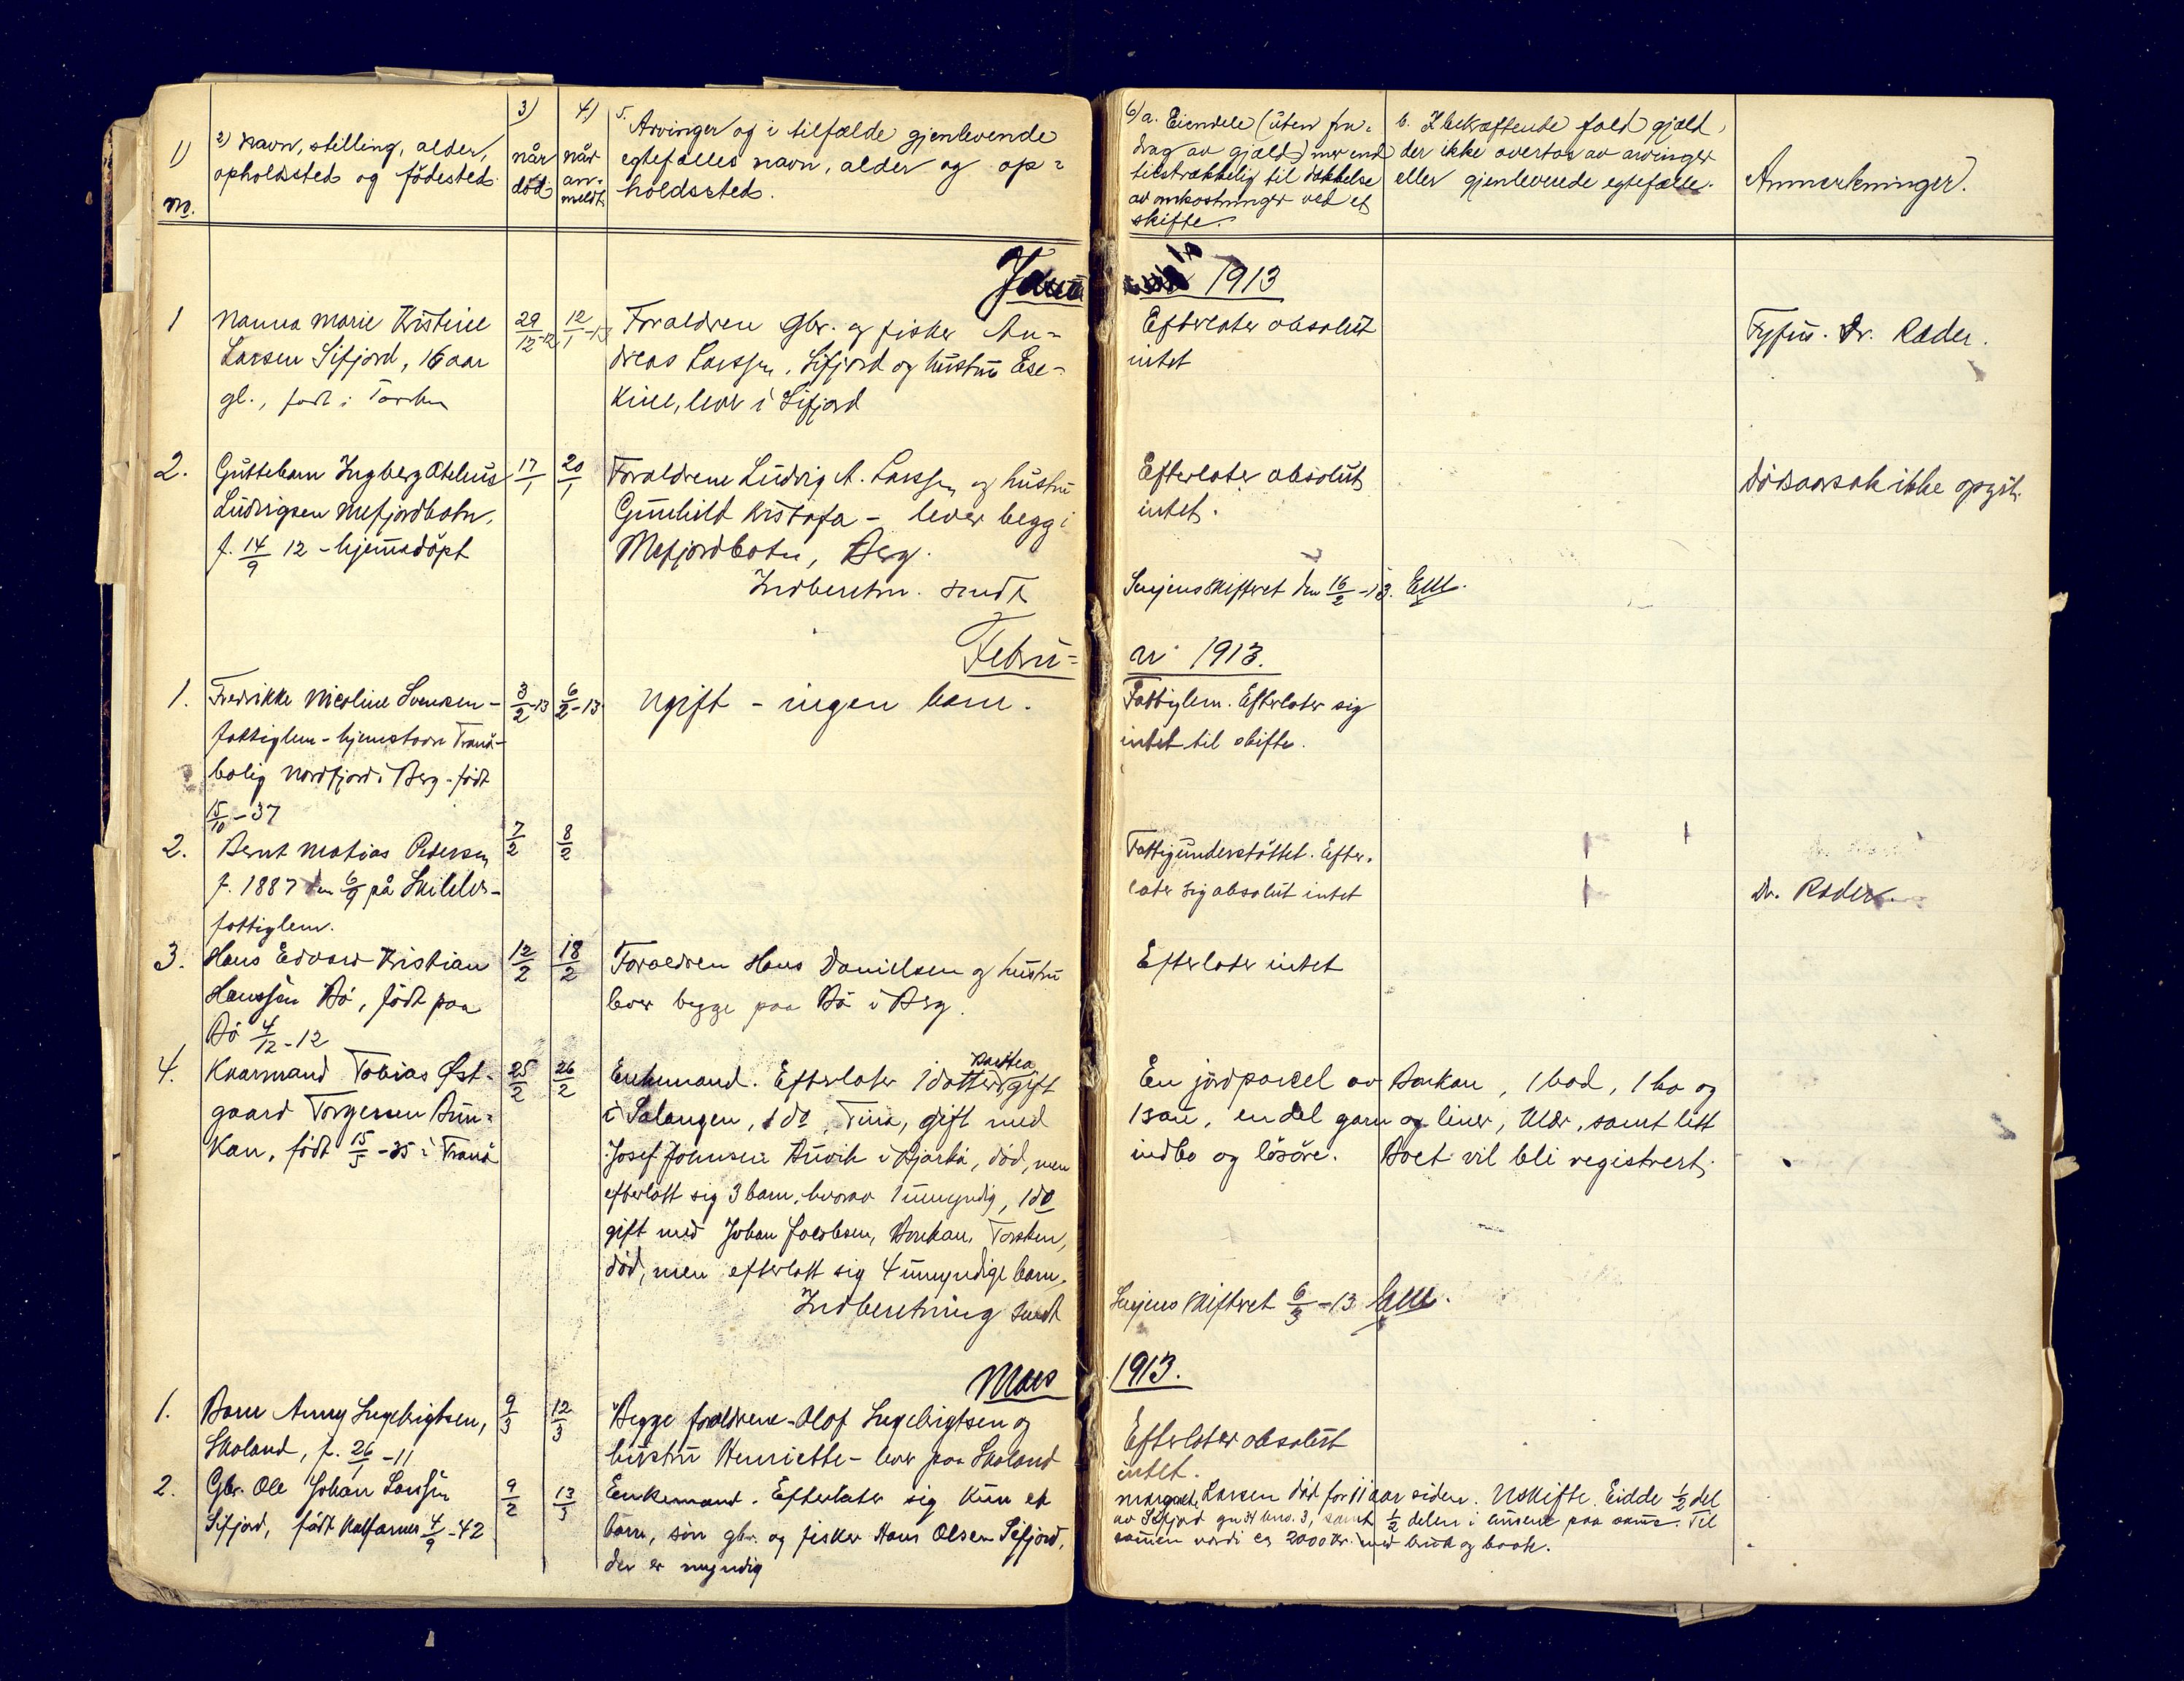 1)
no.
2) Navn, stilling, alder,
opholdssted og fødested.
3)
når
død
4)
når
an-
meldt
5.
Arvinger og i tilfælde gjenlevende
egtefælles navn, alder og op=
holdssted.
6) a. Eiendele (uten fra-
drag av gjæld) mer end
tilstrækkelig til dækkelse
av omkostninger ved et
skifte.
b. I bekræftende fald gjæld,
der ikke overtas av arvinger
eller gjenlevende egtefælle.
Anmerkninger.
Janu
1913
1
Nanna Marie Kristine
Larsen Sifjord, 16 aar
gl., født i Torsken
29/12-12
12/1-13
Forældrene Gbr. og fisker An-
dreas Larssen, Sifjord og hustru Ese-
kine, lever i Sifjord
Efterlater absolut
intet
Tyfus. Dr. Ræder.
2.
Guttebarn Ingberg Otelius
Ludvigsen Mefjordbotn,
f. 14/9 12 - hjemmedöpt
17/1
20/1
Forældrene Ludvig A. Larssen og hustru
Gunhild Kristofa - lever begge i
Mefjordbotn, Berg.
Efterlater absolut
intet.
Dödsaarsak ikke opgit.
Indberetn. sendt
Senjens skifteret den 16/2-13.
Febru=
ar 1913.
1.
Fredrikke Nicoline Svensen -
fattiglem - hjemstavn Tranö -
bolig Nordfjord i Berg - född
15/10-37
3/2-13
6/2-13
Ugift - ingen barn.
Fattiglem. Efterlater sig
intet til skifte.
2.
Bernt Matias Pedersen
f. 1887 den 6/9 på
fattiglem.
7/2
8/2
Fattigunderstöttet. Efter-
later sig absolut intet
Dr. Ræder.
3.
Hans Edvard Kristian
Hanssen Bö, födt paa
Bö 4/12-12
12/2
18/2
Forældrene Hans Danielsen og hustru
lever begge paa Bö i Berg.
Efterlater intet
4.
Kaarmand Tobias Øst-
gaard Torgersen Bun-
kan, födt 15/5-35 i Tranö
25/2
26/2
Enkemand. Efterlater 1 datter, gift
i Salangen, 1 do, Tina, gift med
Josef Johnsen Auvik i Bjarkö, död, men
efterlott sig 3 barn, hvorav 1 umyndig, 1 do
gift med Johan Jacobsen, Bunkan, Torsken,
död, men efterlatt sig 4 umyndige barn.
En jordparcel av Bunkan, 1 baad, 1 ko og
1 sau, endel garn og liner, klær, samt litt
indbo og lösöre. Boet vil bli registrert.
Indberetning sendt
Senjens skifteret 6/3-13
Mars
1913.
1.
Barn Anny Ingebrigtsen,
Skaland, f. 26/1-11
9/3
12/3
Begge forældrene - Olof Ingebrigtsen og
hustru Henriette - lever paa Skaland
Efterlater absolut
intet.
2.
Gbr. Ole Johan Larssen
Sifjord, födt Kalfarnes 4/9-42
9/2
13/3
Enkemand. Efterlater sig kun et
barn, sön gbr. og fisker Hans Olsen Sifjord,
der er myndig
Margrethe Larsen död for 11 aar siden. Uskifte. Eidde 1/2 del
av Sifjord gn 34 bno. 3, samt 1/2 delen i husene paa samme. Til
sammen værdi ca 2000 kr. med bruk og baat.